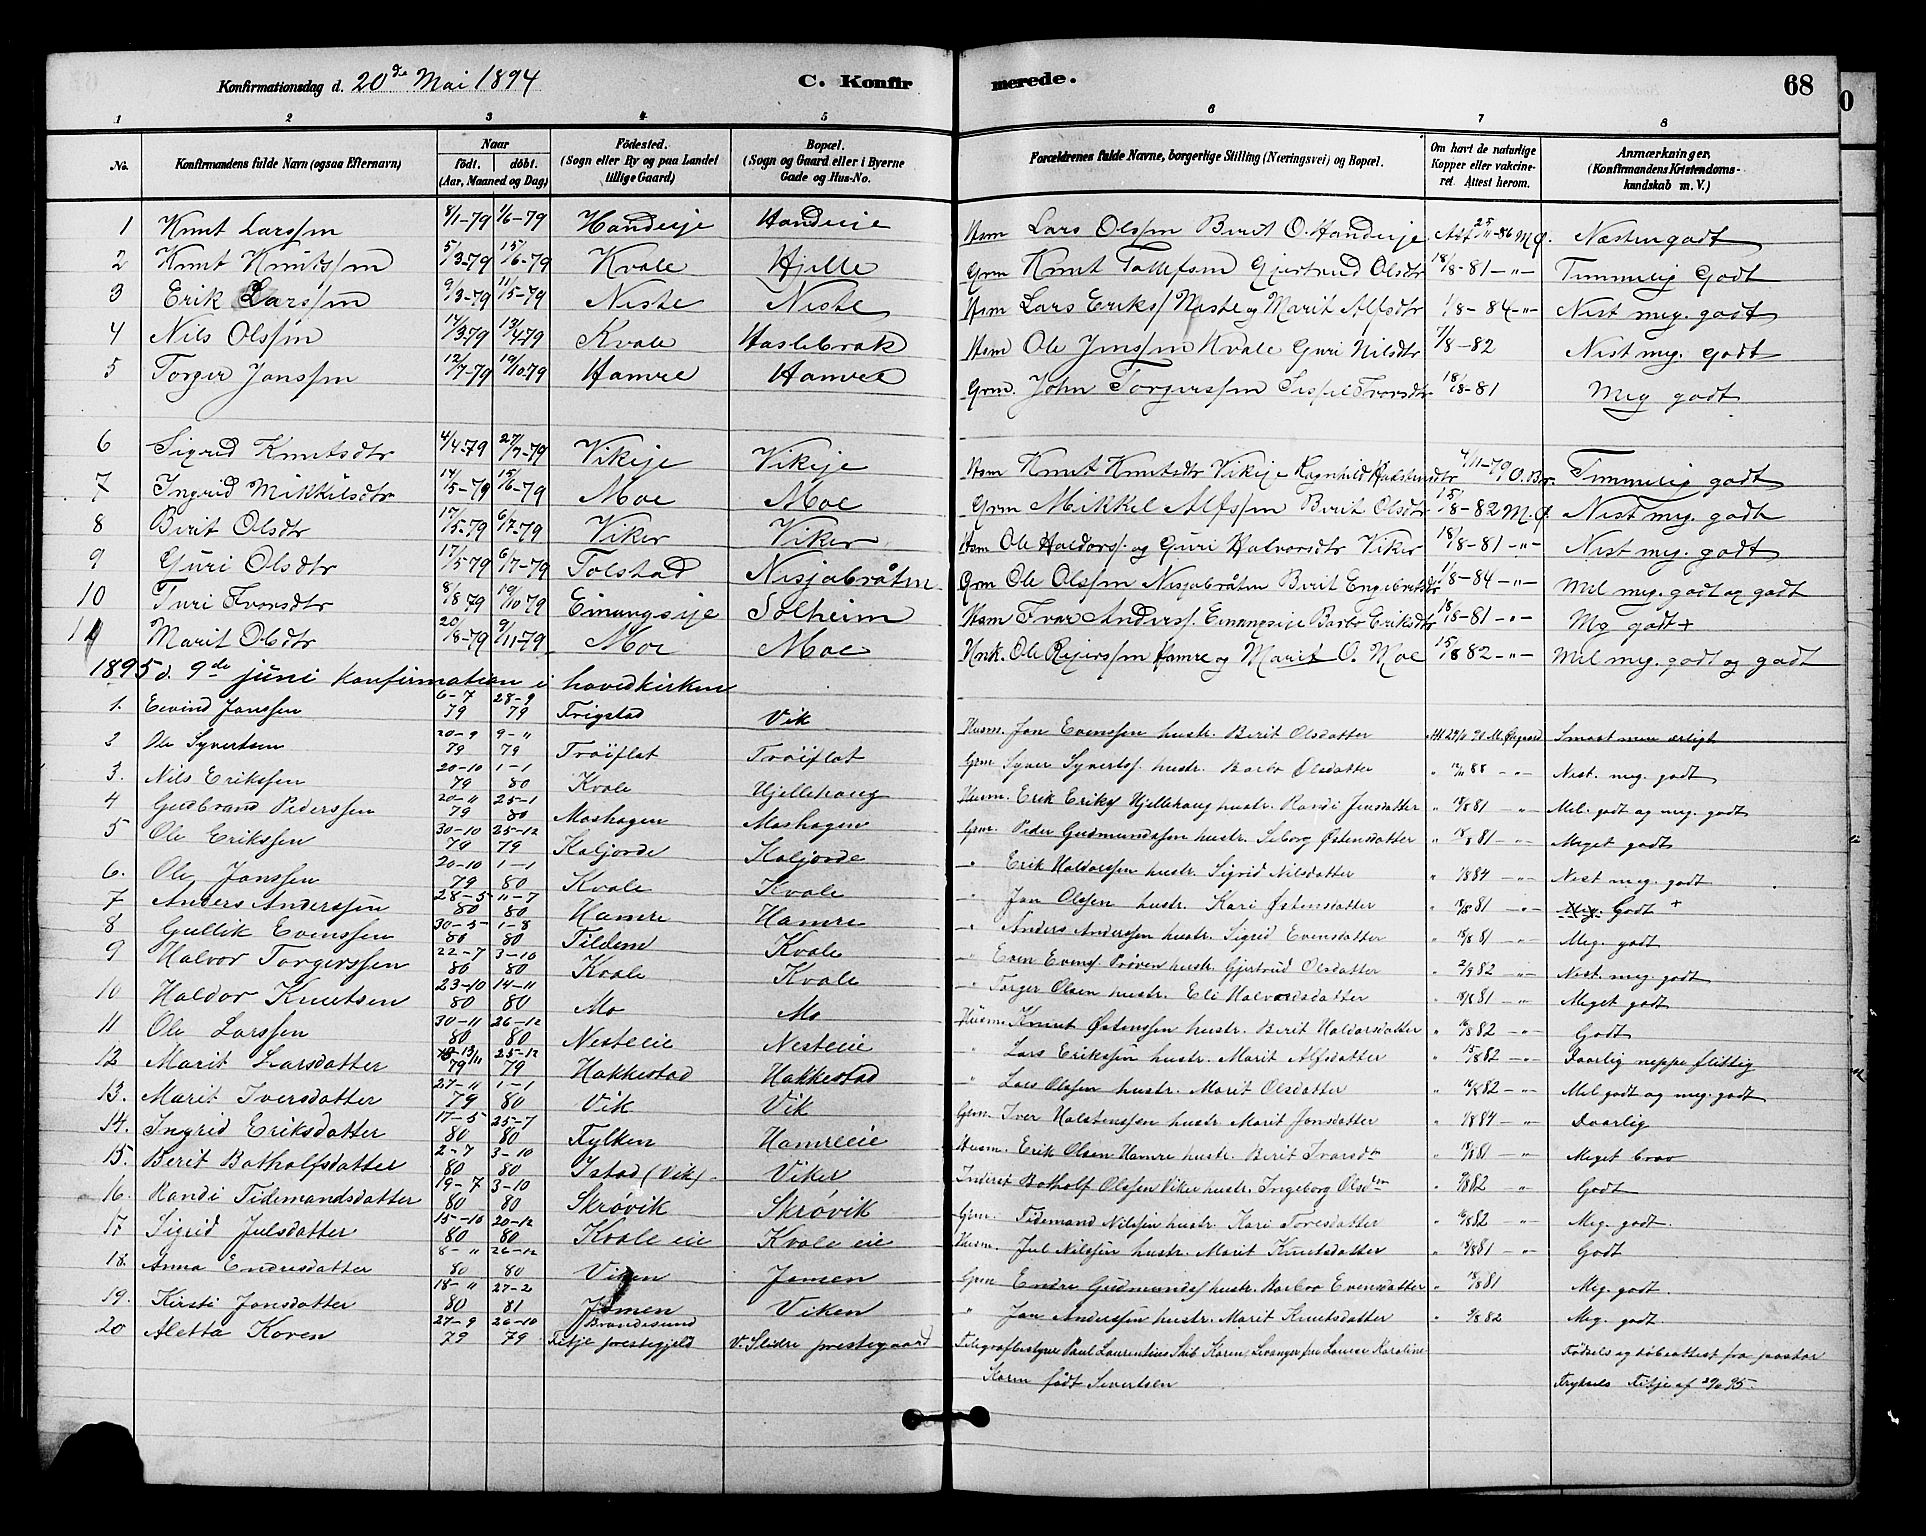 Konfirmationsdag d. 20de Mai 1894 C. Konfirmerede. 68
1 2 3 4 5 6 7 8
No. Konfirmandens fulde Navn (ogsaa Efternavn) Naar födt. döbt. (Aar, Maaned og Dag) Födested. (Sogn eller By og paa Landet tillige Gaard) Bopæl. (Sogn og Gaard eller i Byerne Gade og Hus-No. Forældrenes fulde Navne, borgerlige Stilling (Næringsvei) og Bopæl. Om havt de naturlige Kopper eller vakcineret. Attest herom. Anmærkninger (Konfirmandens Kristendomskundskab m. V.)
1 Knut Larssen 8/1-79 1/6-79 Handeeje Handeeie Hsm Lars Olssen Berit O. Handeeje Att 25/11-86 M.Ø. Næsten godt
2 Knut Knutssen 5/3-79 15/6-79 Kvale Hjelle Grm Knut Tollefsen Gjertrud Olsdtr 18/8-81 -"- Timmelig Godt
3 Erik Larssen 9/3-79 11/5-79 Neste Neste Hsm Lars Eriks/ Neste og Marit Alfsdtr 1/8-84 -"- Nest meg. godt
4 Nils Olssen 14/3-79 13/4-79 Kvale Haslebrak Hsm Ole Jenssen Kvale Guri Nilsdtr 7/8-82 Nest meg. Godt
5 Torger Jonssen 12/7-79 19/10-79 Hamre Hamre Grm. John Torgerssen Sissel Ivarsdtr 18/8-81 Meg godt
6 Sigrid Knutsdtr 4/4-79 27/7-79 Vikeje Vikeje Hsm Knut Knutsdtr Vikeje Ragnhild 4/11-79 O.Br. Timmelig godt
7 Ingrid Mikkelsdtr 14/5-79 15/6-79 Moe Moe Grm Mikkel Alfssen Berit Olsdtr 15/8-82 M.Ø. Nest meg. godt
8 Berit Olsdtr 17/5-79 6/7-79 Viker Viker Hsm Ole Haldors/. og Guri Halvorsdtr Viker 18/8-81 -"- Nest meg. godt
9 Guri Olsdtr 17/5 79 6/7-79 Tolstad Nisjabråten Grm Ole Olssen Nisjabråten Berit Engebretsdtr 1/8-84 -"- Mel meg. godt og godt
10 Turi Ivarsdtr 8/8 79 19/10 79 Einangseje Solheim Hsm Ivar Anders/. Einangseje Barbr Eriksdtr 18/8-81 -"- Mg godt+
11 Marit Olsdtr 20/8-79 9/11-79 Moe Moe Unk. Ole Rejerssen Hamre og Marit O. Moe 15/8 82 -"- Mel meg. godt og godt
1895 d. 9de juni konfirmation i hovedkirken
1. Eivind Janssen 6-7 79 28-9 79 Trigstad Vik Husm. Jan Evenssen hustr. Berit Olsdatter Att 29/11 91 M. Øegaard Smaat men ærligt
2 Ole Syvertsen 20-9 79 9-" 79 Tröiflat Tröiflat Grm Syver Syverts/. hustr. Barbr Olsdatter " 12/11 88 -"- Nest. meg. godt
3. Nils Erikssen 20-10 79 1-1 80 Kvale Hjellehaug Husm. Erik Eriks/ Hjellehaug hustr. Randi Jensdatter " 18/8 81 -"- Mel. godt og meg. godt
4 Gudbrand Pederssen 20-11 79 25-1 80 Moshagen Moshagen Grm. Peder Gudmundssen hustr. Seborg Østensdatter " 18/8 81 -"- Meget godt
5 Ole Erikssen 30-10 79 25-12 79 Kaljorde Kaljorde " Erik Haldorssen hustr. Sigrid Nilsdatter " 1/8 84 -"- Nest meg. godt
6. Ole Janssen 20-10 79 1-1 80 Kvale Kvale " Jan Olssen hustr. Kari Østensdatter " 18/8 81 -"- Godt +
7 Anders Anderssen 28-5 80 11-7 80 Hamre Hamre " Anders Anderssen hustr. Sigrid Evensdatter " 18/8 81 -"- Meg. godt
8 Gullik Evenssen 30-5 80 1-8 80 Tildem Kvale " Even Evens/. Prøven hustr. Gjertrud Olsdatter " 2/9 82 -"- Nest meg. godt
9 Halvor Torgerssen 22-7 80 3-10 80 Kvale Kvale " Torger Olsen hustr. Eli Halvorsdatter " 18/8 81 -"- Meget godt
10 Haldor Knutsen 23-10 80 14-11 80 Mo Mo Husm. Knut Østenssen hustr. Berit Haldorsdatter " 16/8 82 -"- Godt
11 Ole Larssen 30-11 80 26-12 80 Nesteeie Nesteeie " Lars Erikssen hustr. Marit Alfsdatter " 15/8 82 -"- Daarlig neppe flittig
12 Marit Larsdatter 13/11 79 25-12 79 Hakkestad Hakkestad " Lars Olssen hustr. Marit Olsdatter " 16/8 82 -"- Mel godt og meg. godt
13. Marit Iversdatter 27-11 79 1-1 80 Vik Vik Grm. Iver Halstenssen hustr Marit Jonsdatter " 1/8 84 -"- Daarlig
14. Ingrid Eriksdatter 17-5 80 25-7 80 Fylken Hamreeie Husm. Erik Olsen Hamre hustr. Berit Ivarsdtr " 18/8 81 -"- Meget brav
15. Berit Botholfsdatter 2-7 80 3-10 80 Istad (Vik) Viker Inderst Botholf Olssen Viker hustr. Ingeborg Olsdtr " 9/8 82 -"- Godt
16. Randi Tidemandsdatter 19-7 80 3-10 80 Skrøvik Skrøvik Grm. Tidemand Nilssen hustr. Kari Toresdatter " 16/8 82 -"- Meg. godt.
17 Sigrid Julsdatter 15-10 80 20-12 80 Kvale eie Kvale eie Husm. Jul Nilssen hustr. Marit Knutsdatter " 18/8 81 -"- Godt
18. Anna Endresdatter 8-" 80 26-12 80 Viken Jomen Grm Endre Gudmunds/ hustr. Barbro Evensdatter " 18/8 81 Meg. godt
19. Kirsti Jonsdatter 18-" 80 27-2 81 Jomen Viken " Jan Anderssen hustr. Marit Knutsdatter " 9/8 82 Meg. godt
20 Aletta Koren 27-9 79 26-10 79 Brandesund Fitje prestegjeld V. Slidre prestegaard Telegrafbestyrer Paul Laurentius Skib Koren, Levanger fru Louise Karoline Fødsels og døbeattest fra pastor
Koren født Sivertsen Fitje af 29/6 95.